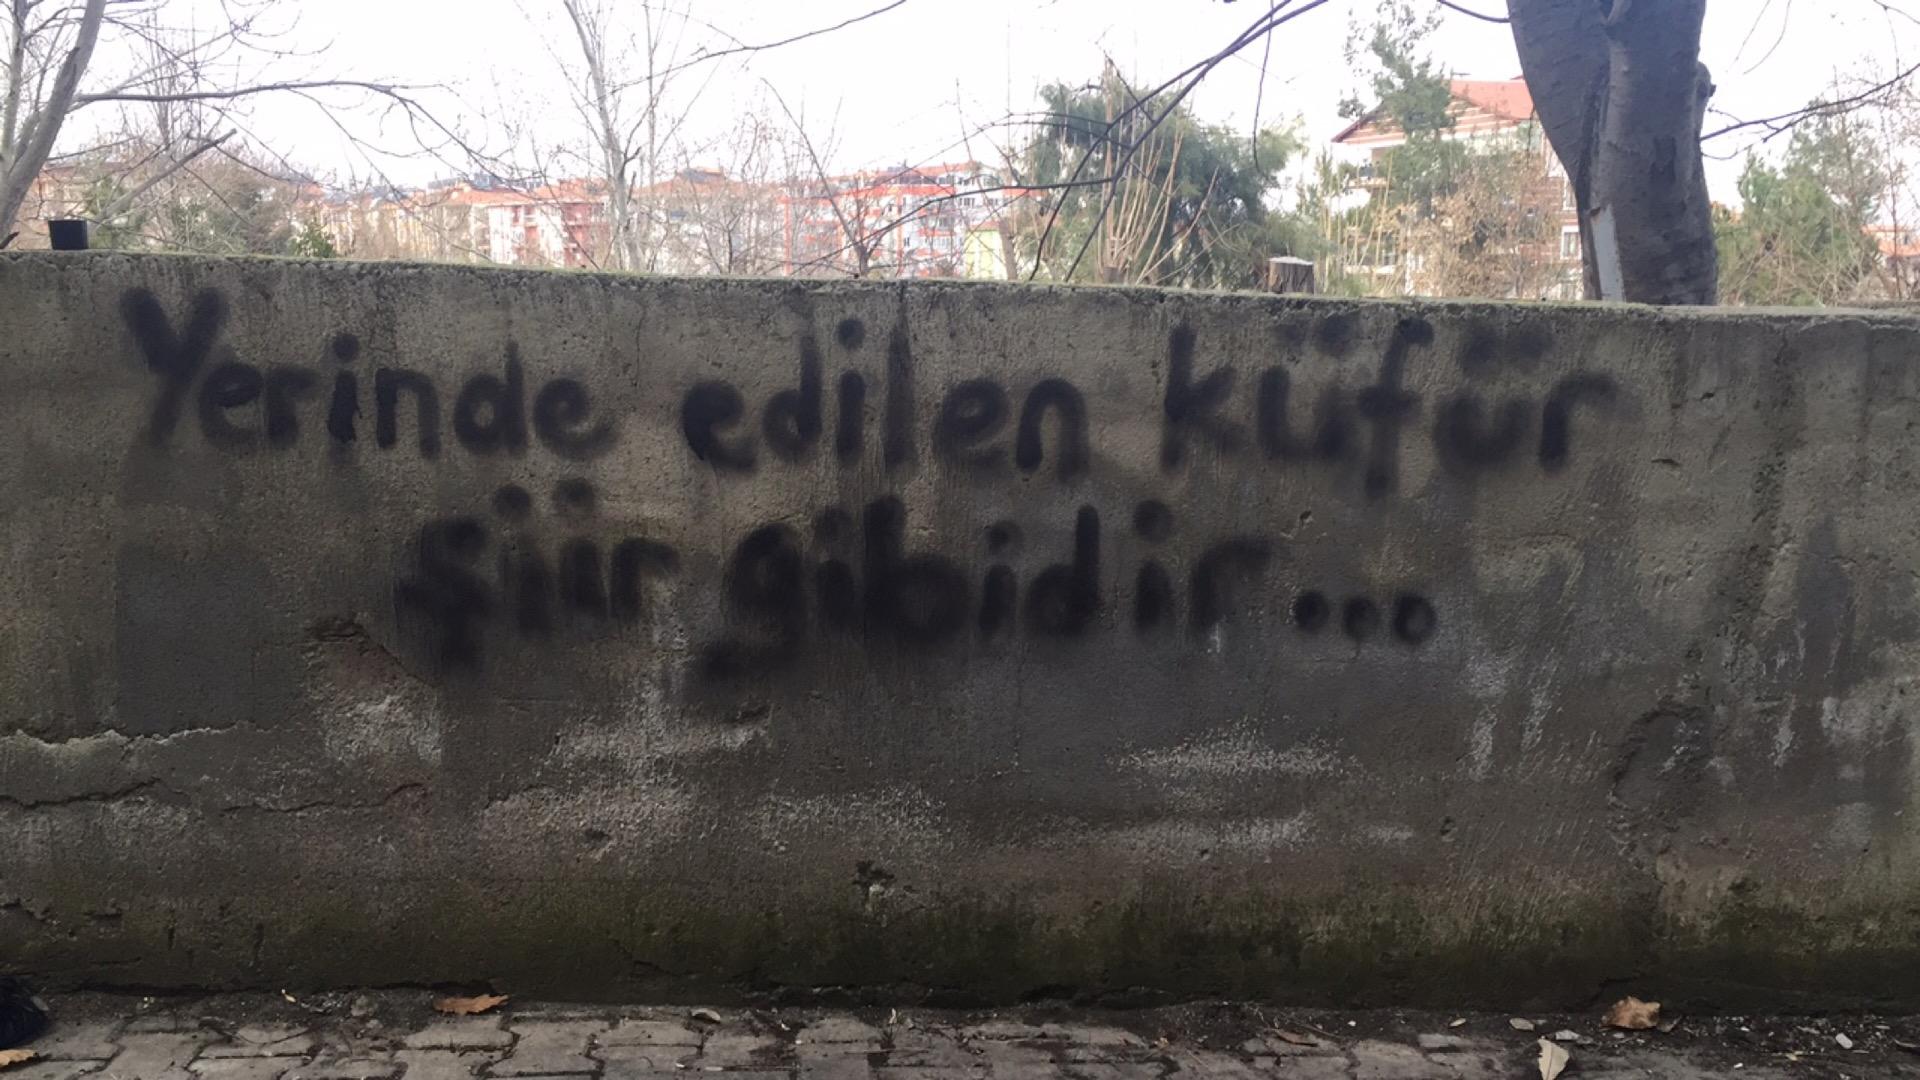 Yerinde edilen küfür
şiir gibidir...